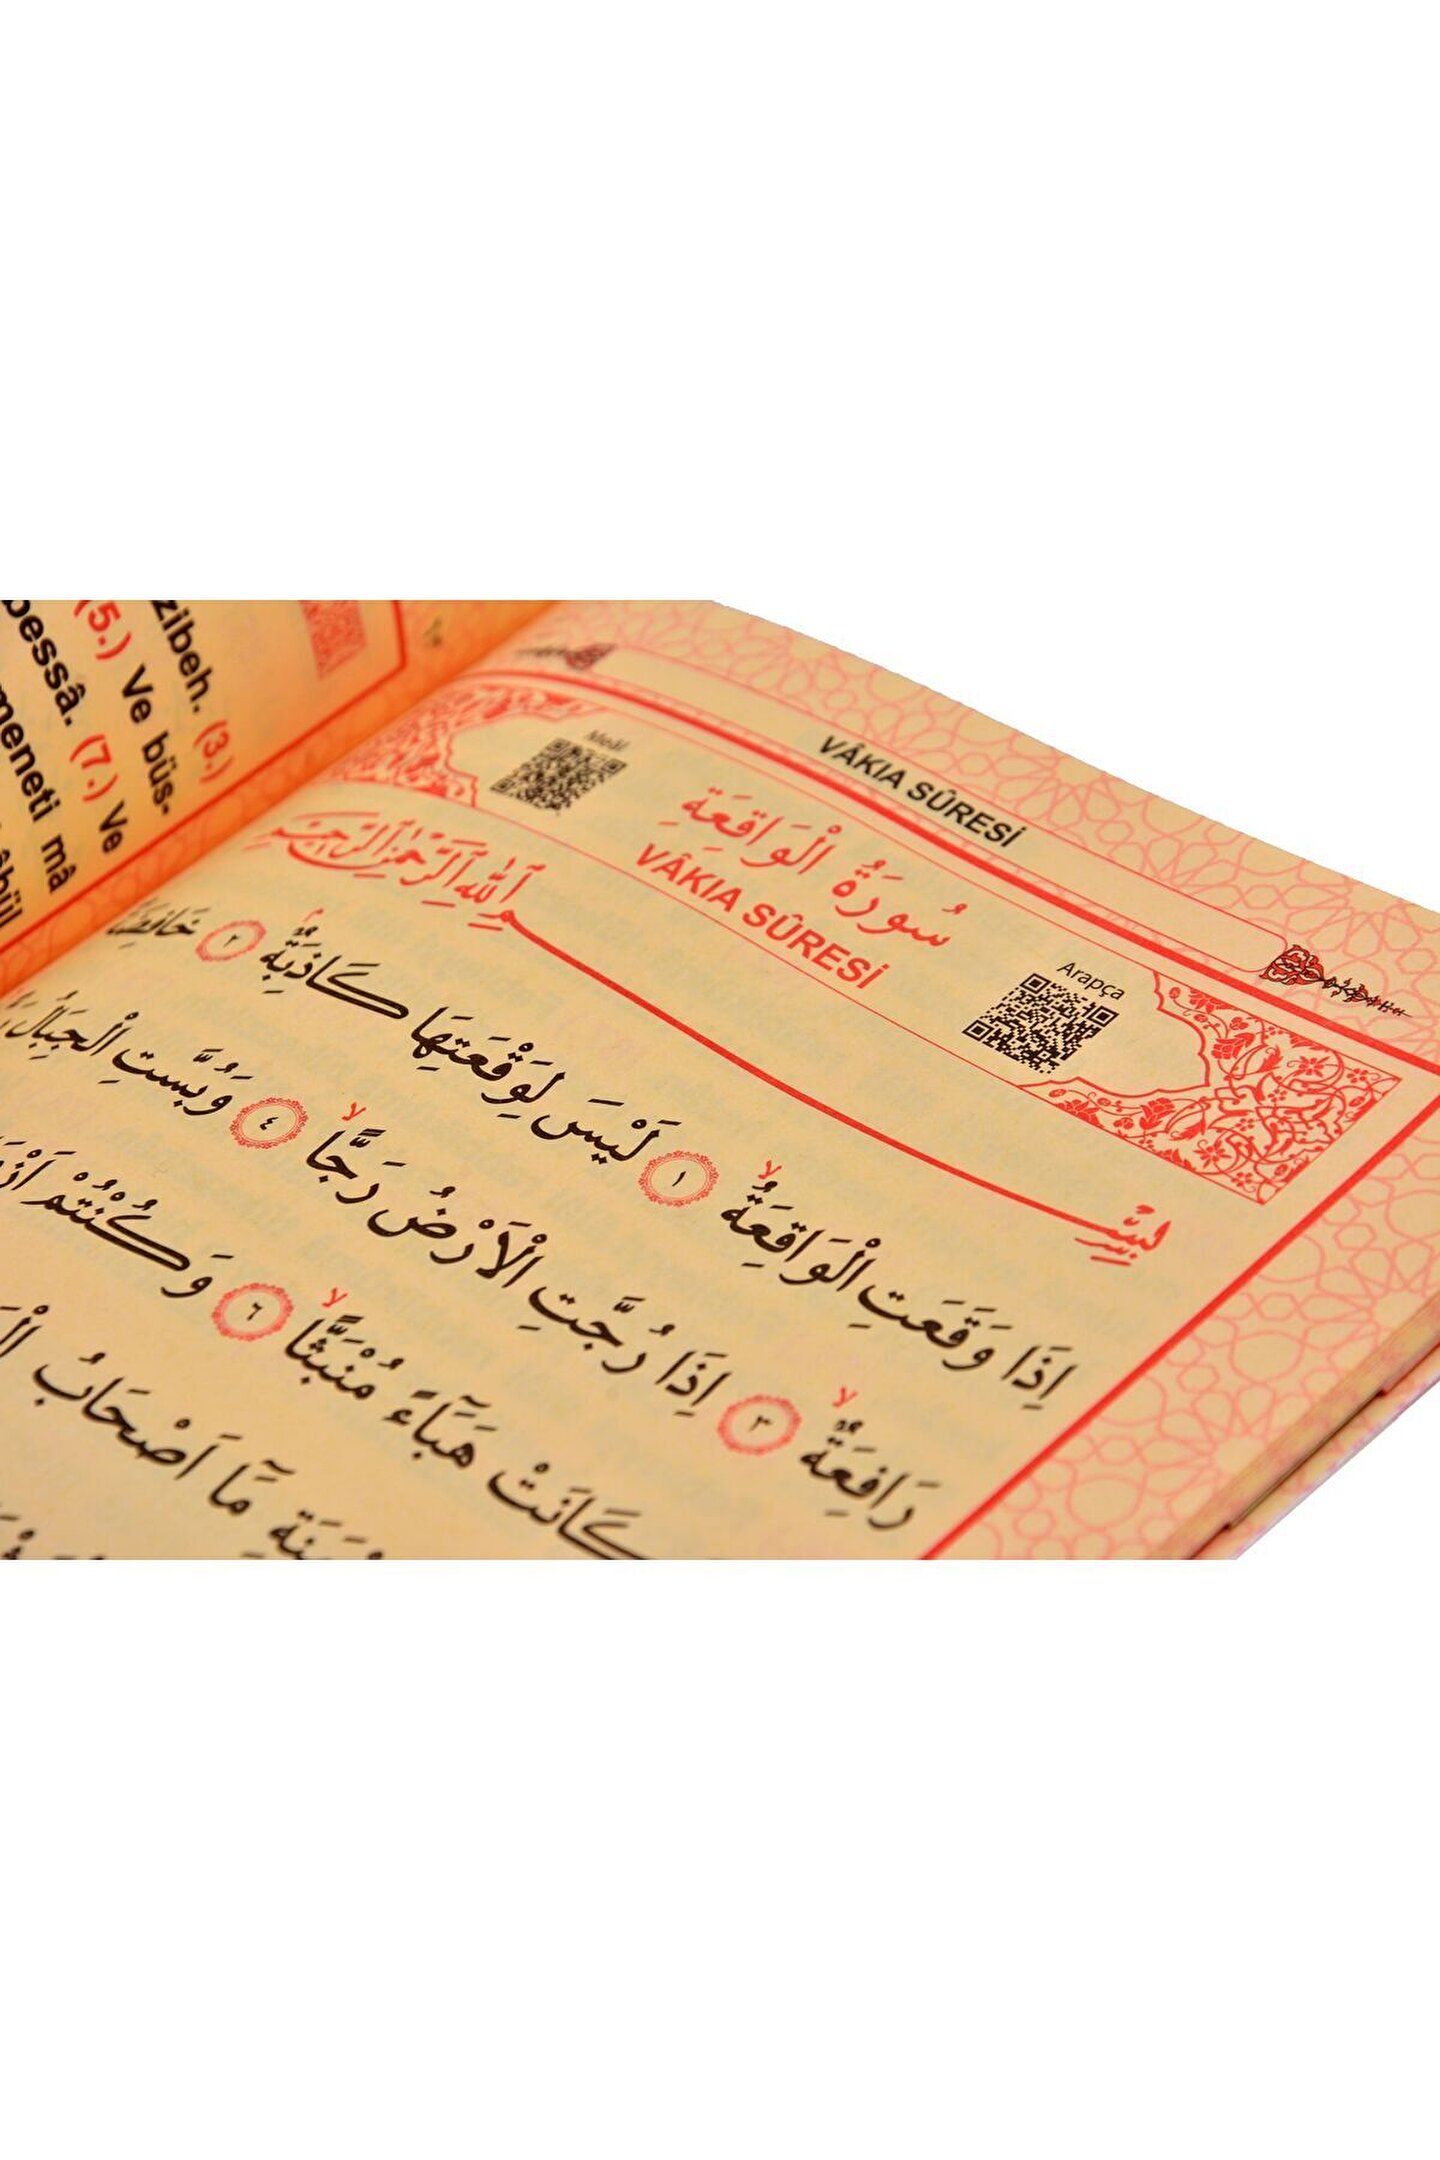 zibeh. (3.)
(5.) Ve büs-
bessâ. (7.) Ve
meneti mâ
VÂKIA SÛRESİ
Meâl
سُورَةُ الْوَاقِعَةِ
VÂKIA SÛRESİ
Arapça
بِسْمِ ٱللّٰهِ ٱلرَّحْمٰنِ ٱلرَّحِيمِ
اِذَا وَقَعَتِ الْوَاقِعَةُۙ ﴿١﴾ لَيْسَ لِوَقْعَتِهَا كَاذِبَةٌۢ ﴿٢﴾ خَافِضَةٌ
رَافِعَةٌۙ ﴿٣﴾ اِذَا رُجَّتِ الْاَرْضُ رَجًّاۙ ﴿٤﴾ وَبُسَّتِ الْجِبَالُ
كَانَتْ هَبَٓاءً مُنْبَثًّاۙ ﴿٦﴾ وَكُنْتُمْ
مَٓا اَصْحَابُ